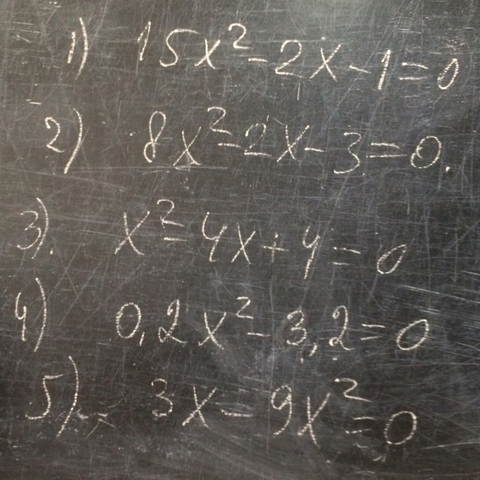 1) 15x²-2x-1=0
2) 8x²-2x-3=0.
3). x²-4x+4=0
4) 0,2x²-3,2=0
5) 3x-9x²=0